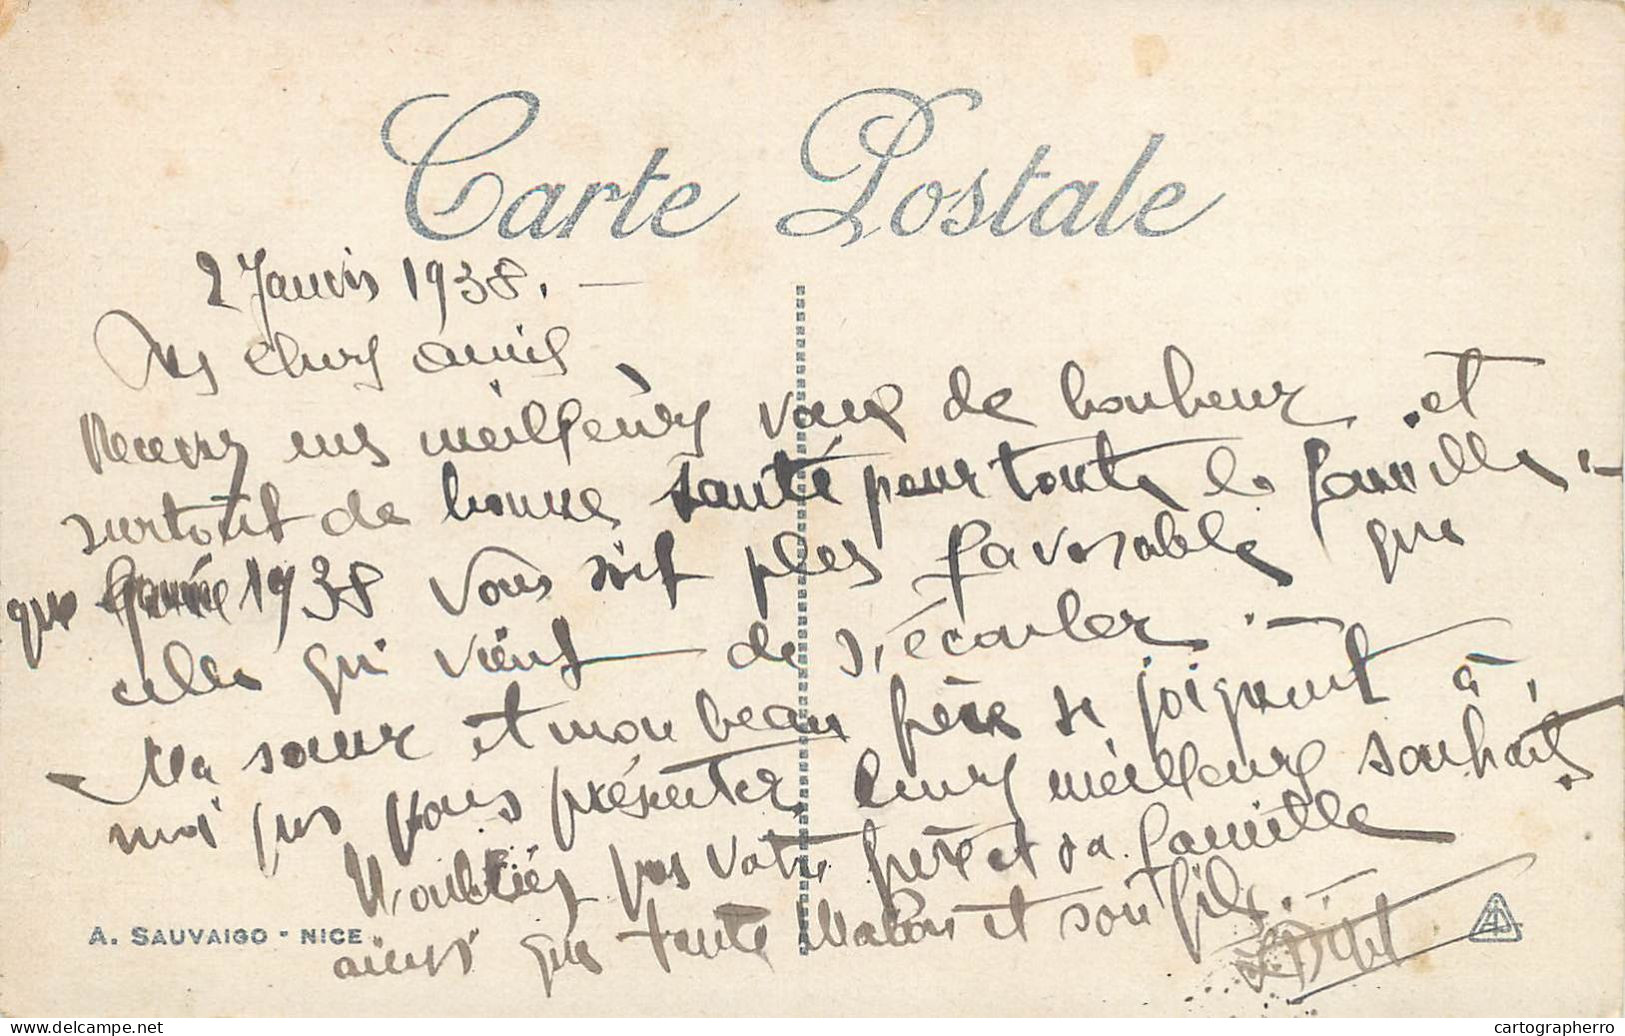 Carte Postale
2 Janvier 1938. —
Mes chers amis
Recevez mes meilleurs vœux de bonheur et
surtout de bonne santé pour toute la famille -
que l'année 1938 vous soit plus favorable que
celle qui vient de s'écouler. —
Ma sœur et mon beau frère se joignent à
moi pour vous présenter leurs meilleurs souhaits.
N'oubliez pas votre frère et sa famille
ainsi que tante et son fils.
A. SAUVAIGO - NICE
delcampe.net
cartographerro